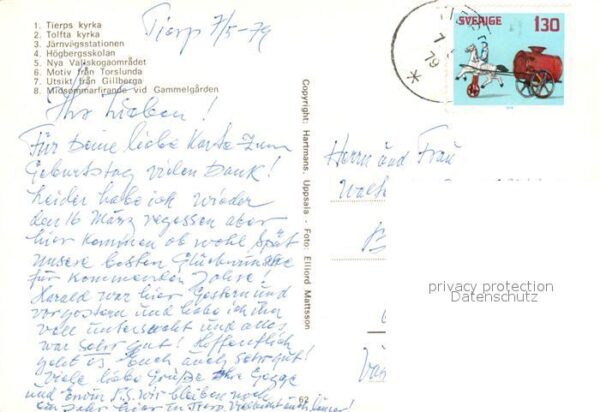 1. Tierps kyrka
2. Tolfta kyrka
3. Järnvägsstationen
4. Högbergsskolan
5. Nya Vallskogaområdet
6. Motiv från Torslunda
7. Utsikt från Gillberga
8. Midsommarfirande vid Gammelgården
Tierp 7/5-79
Ihr Lieben!
Für Deine liebe Karte zum
Geburtstag vielen Dank!
Leider habe ich wieder
den 16 März vegessen aber
hier kommen ob wohl spät
unsere besten Glückwünsche
für kommenden Jahre.
Harald war hier Gestern und
vorgestern und habe ich ihn
voll untersucht und alles
war sehr gut! Hoffentlich
geht es Euch auch sehr gut!
Viele liebe Grüße Ihre
und Erwin P.S. wir bleiben noch
ein Jahr hier in Tierp. Vielleicht auch länger!
Copyright: Hartmans, Uppsala - Foto: Elliord Mattsson
62
SVERIGE 130
7
79
Herrn und Frau
privacy protection
Datenschutz